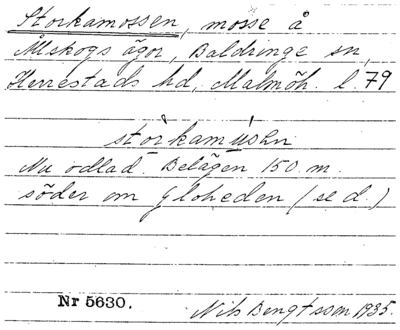 Storkamossen, mosse å
Ålskogs ägor, Baldringe sn,
Herrestads hd, Malmöh. l. 79
Nu odlad. Belägen 150 m.
söder om Gloheden (se d.)
Nr 5630. Nils Bengtsson 1935.